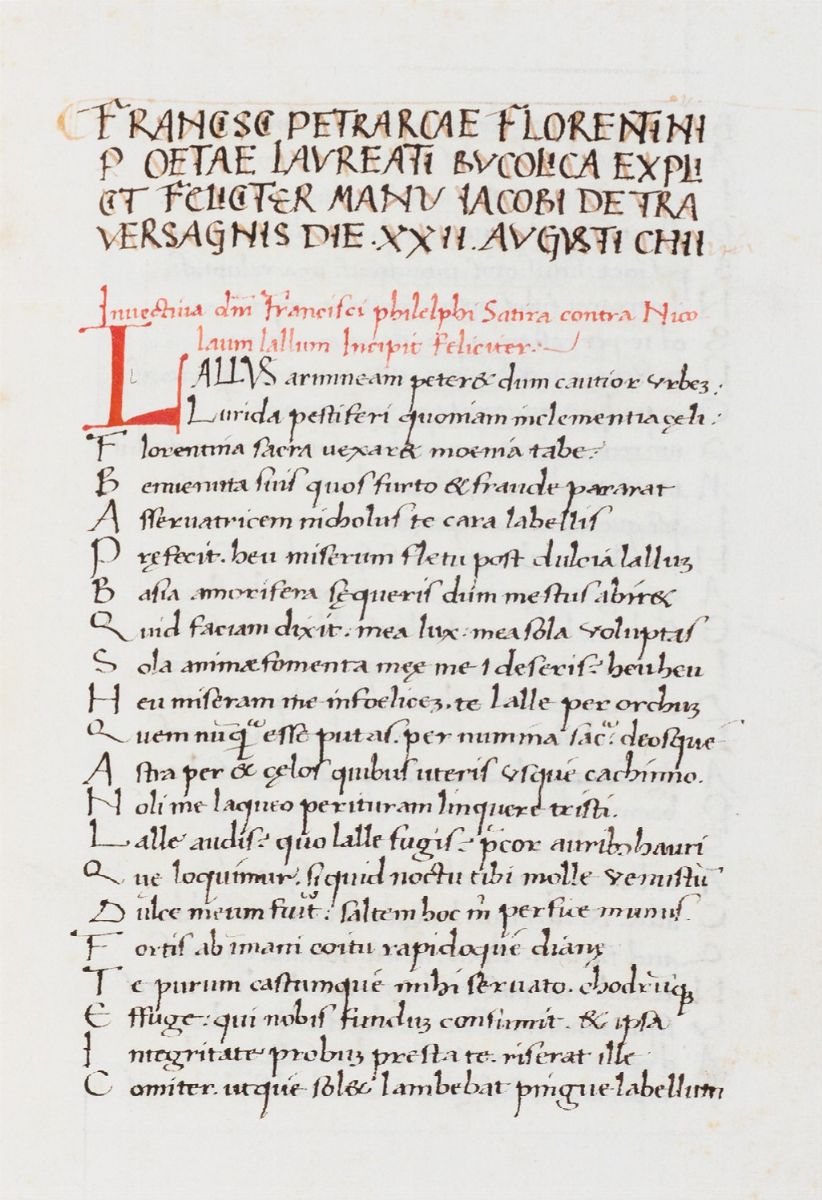 FRANCISCI PETRARCAE FLORENTINI
POETAE LAVREATI BVCOLICA EXPLI
CIT FELICITER MANV IACOBI DE TRA
VERSAGNIS DIE .XXII. AVGVSTI
Inuectiua dn̄i Francisci philelphi Satira contra Nico
laum lallum Incipit feliciter.
LALLVS arimineam peter& dum cautior vrbeʒ:
Lurida pestiferi quoniam inclementia cęli:
Florentina sacra vexar& moenia tabe:
Benvenuta suis quos furto & fraude pararat
Asservatricem nicholus te cara labellis
Pręfecit. heu miserum fletu post dulcia lalluʒ
Basia amorifera sęqueris dum mestus abir&
Quid faciam dixit. mea lux. mea sola voluptas
Sola animæ fomenta męę me deseris? heu heu
Heu miseram me infoeliceʒ. te lalle per orchuʒ
Quem esse putas. per numina deosque
Astra per & cęlos quibus uteris vsque cachinno.
Noli me laqueo perituram linquere tristi.
Lalle audis? quo lalle fugis? p̄cor hauri
Que loquimur. siquid noctu tibi molle venustū
Dulce meum fuit: saltem hoc m̄ perfice munus.
Fortis ab īmani coitu rapidoque dianę
Te purum castumque mihi servato.
Effuge: qui nobis funduʒ consumit. & ipsa
Integritate probuʒ presta te. riserat ille
Comiter. utque sol& lambebat pingue labellum